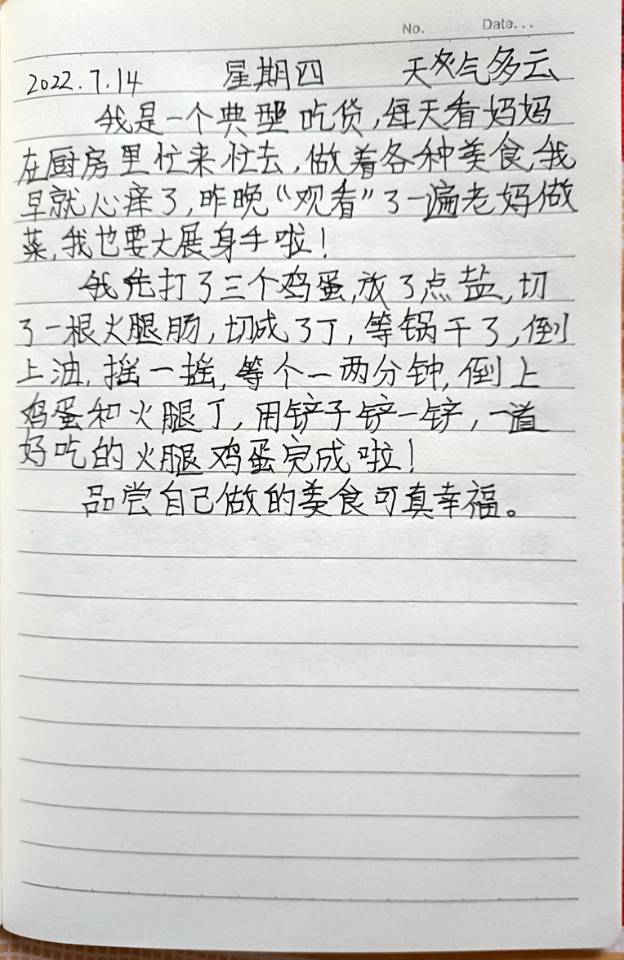 No. Date...
2022.7.14 星期四 天气多云
我是一个典型吃货,每天看妈妈
在厨房里忙来忙去,做着各种美食,我
早就心痒了,昨晚“观看”了一遍老妈做
菜,我也要大展身手啦!
我先打了三个鸡蛋,放了点盐,切
了一根火腿肠,切成了丁,等锅干了,倒
上油,摇一摇,等个一两分钟,倒上
鸡蛋和火腿丁,用铲子铲一铲,一道
好吃的火腿鸡蛋完成啦!
品尝自己做的美食可真幸福。